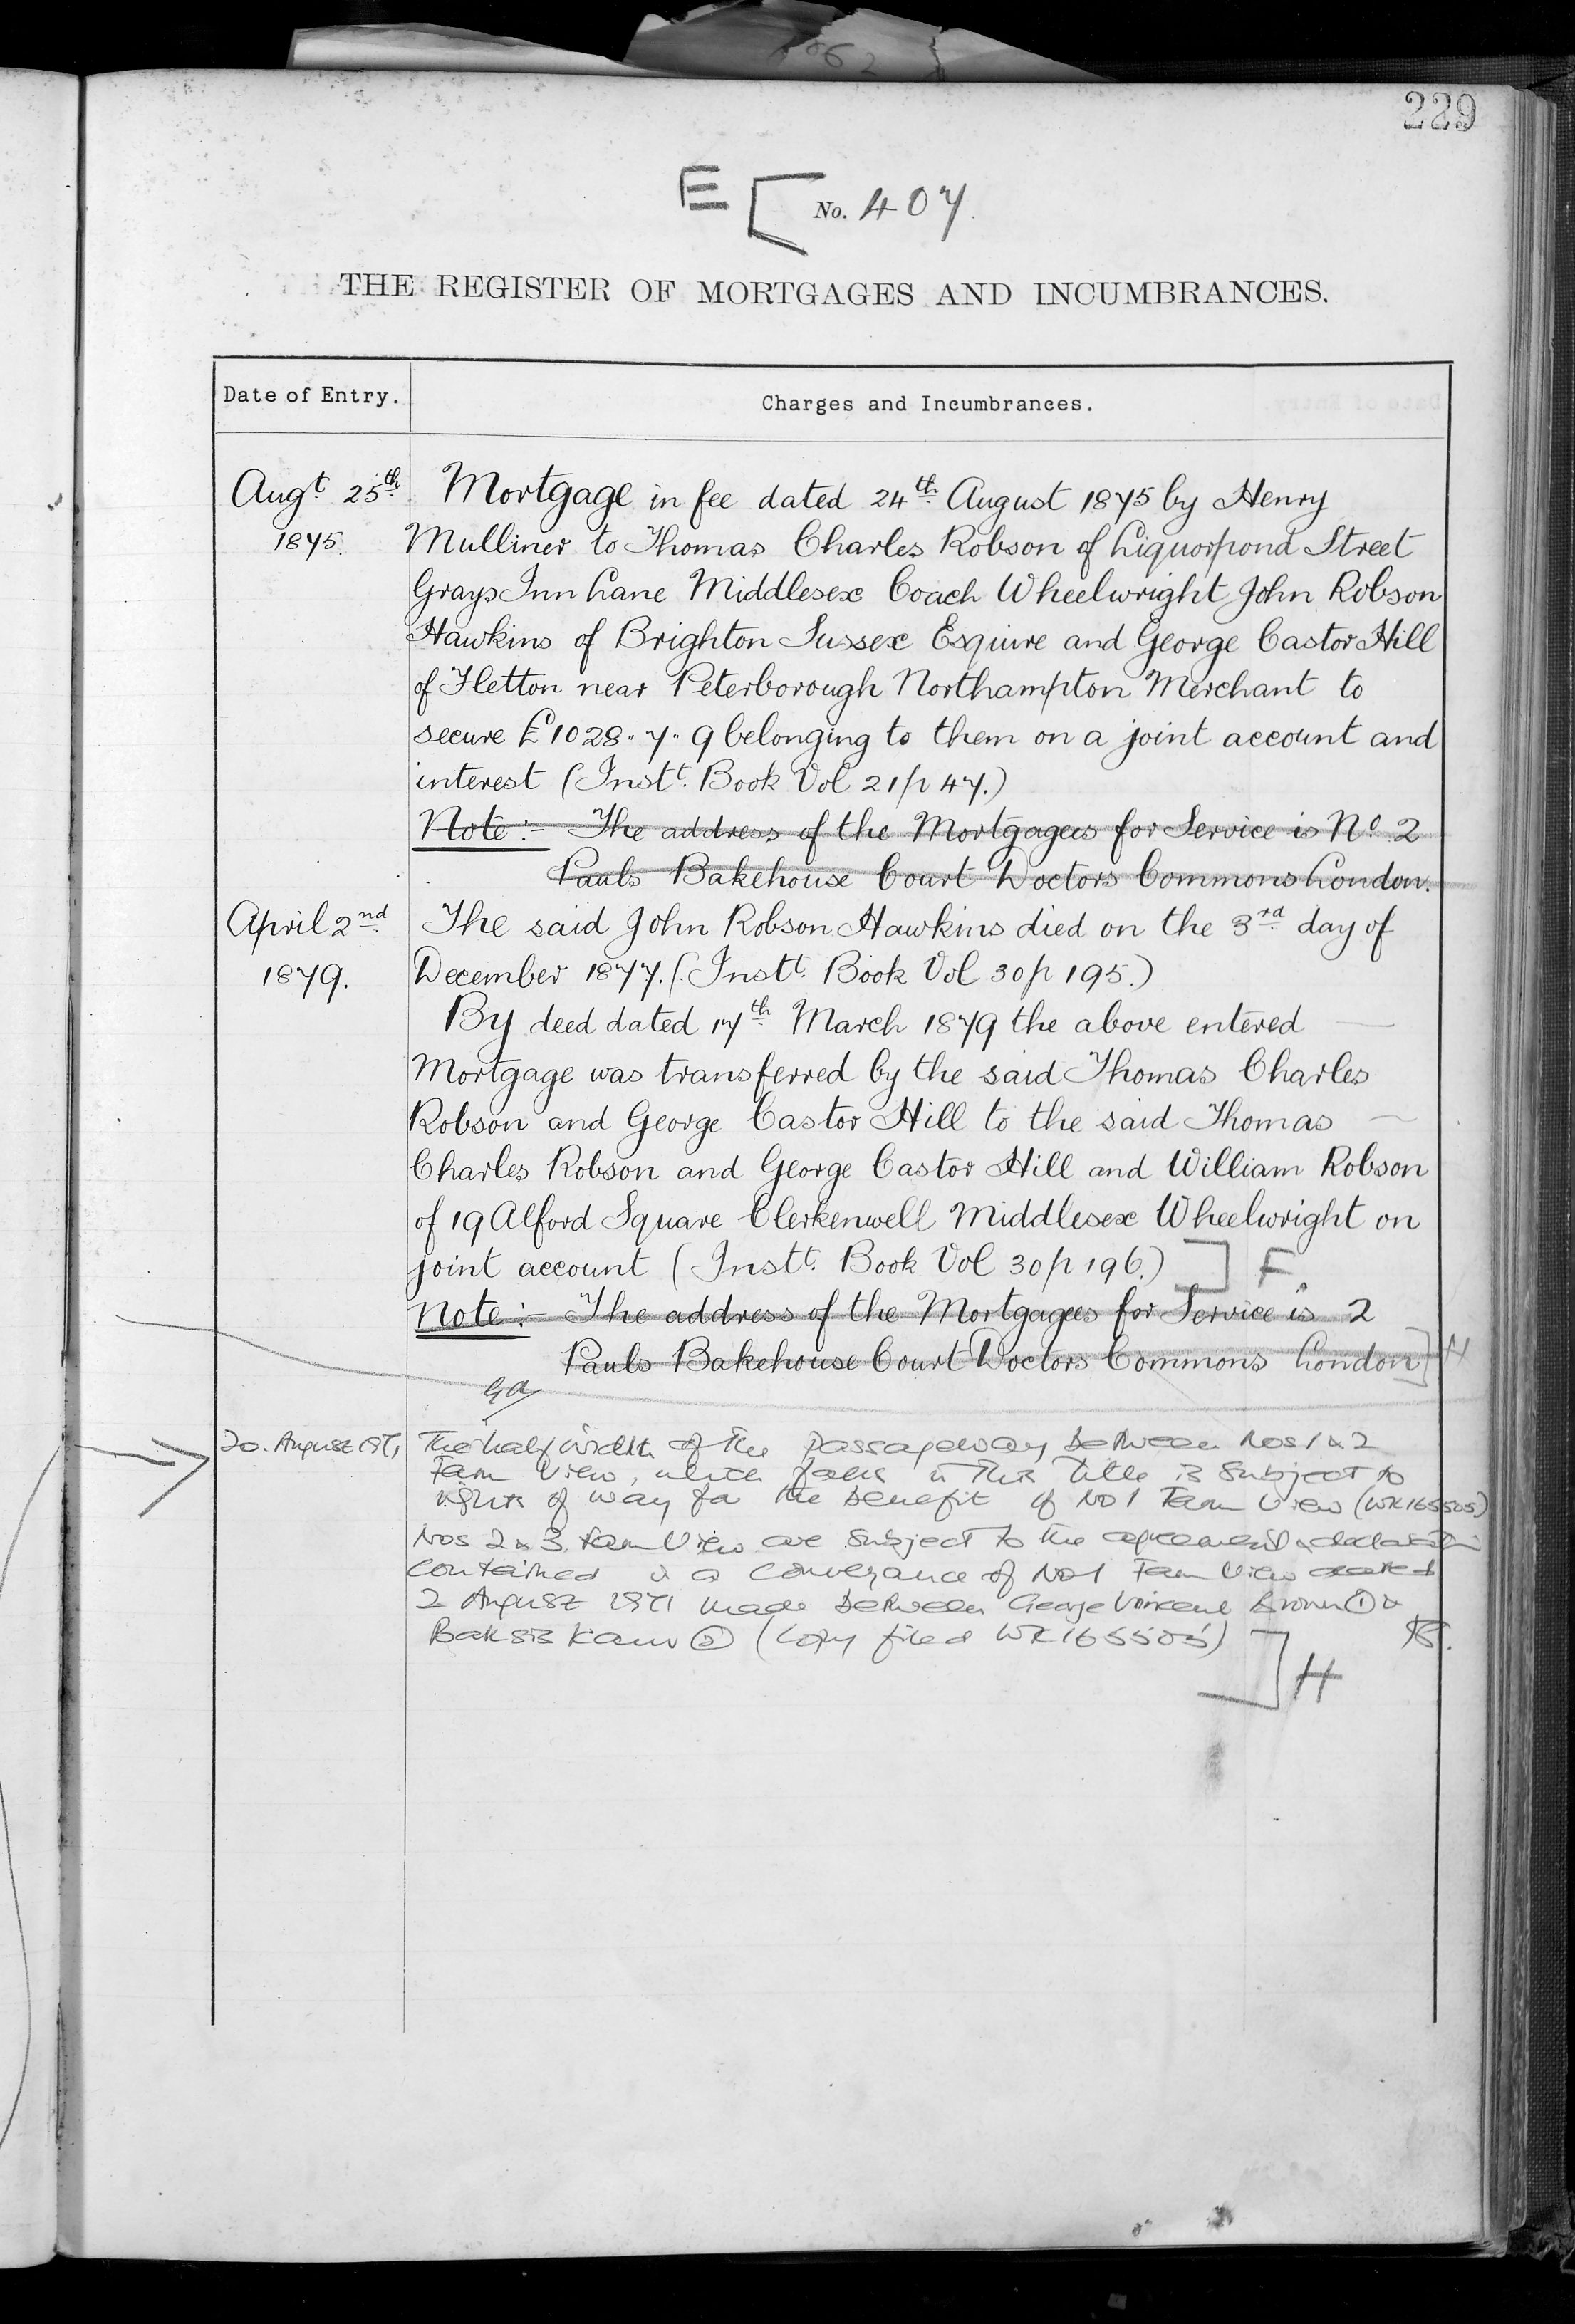 229
E [ No. 407.
THE REGISTER OF MORTGAGES AND INCUMBRANCES.
Date of Entry.
Charges and Incumbrances.
Augt. 25th 1875.
Mortgage in fee dated 24th August 1875 by Henry
Mulliner to Thomas Charles Robson of Liquorpond Street
Grays Inn Lane Middlesex Coach Wheelwright John Robson
Hawkins of Brighton Sussex Esquire and George Castor Hill
of Fletton near Peterborough Northampton Merchant to
secure £1028.. 7.. 9 belonging to them on a joint account and
interest (Instt. Book Vol 21 p 47.)
Note:- The address of the Mortgagees for Service is No. 2
Pauls Bakehouse Court Doctors Commons London.
April 2nd 1879.
The said John Robson Hawkins died on the 3rd day of
December 1877. (Instt. Book Vol 30 p 195.)
By deed dated 17th March 1879 the above entered
Mortgage was transferred by the said Thomas Charles
Robson and George Castor Hill to the said Thomas
Charles Robson and George Castor Hill and William Robson
of 19 Alford Square Clerkenwell Middlesex Wheelwright on
joint account (Instt. Book Vol 30 p 196.) ] F.
Note:- The address of the Mortgagees for Service is 2
Pauls Bakehouse Court Doctors Commons London ] H
20. August 1971
The half width of the passageway between Nos 1 & 2
View, which falls in this title is subject to
rights of way for the benefit of No 1 View (WK165505)
Nos 2 & 3 View are subject to the agreement & declaration
contained in a Conveyance of No 1 View dated
2 August 1971 made between George Vincent Brown (1) &
Baksis Kaur (2) (Copy filed WK165505) ] H